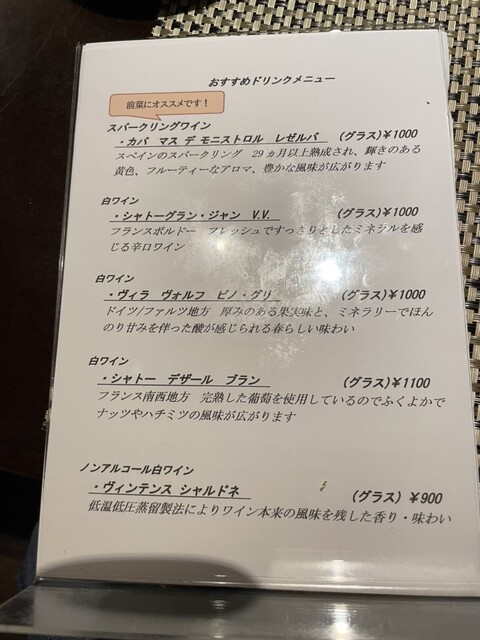 おすすめドリンクメニュー
前菜にオススメです！
スパークリングワイン
・カバ マス デ モニストロル レゼルバ (グラス)￥1000
スペインのスパークリング 29ヵ月以上熟成され、輝きのある
黄色、フルーティーなアロマ、豊かな風味が広がります
白ワイン
・シャトーグラン・ジャン V.V. (グラス)￥1000
フランスボルドー フレッシュですっきりとしたミネラルを感
じる辛口ワイン
白ワイン
・ヴィラ ヴォルフ ピノ・グリ (グラス)￥1000
ドイツ/ファルツ地方 厚みのある果実味と、ミネラリーでほん
のり甘みを伴った酸が感じられる春らしい味わい
白ワイン
・シャトー デザール ブラン (グラス)￥1100
フランス南西地方 完熟した葡萄を使用しているのでふくよかで
ナッツやハチミツの風味が広がります
ノンアルコール白ワイン
・ヴィンテンス シャルドネ (グラス) ￥900
低温低圧蒸留製法によりワイン本来の風味を残した香り・味わい